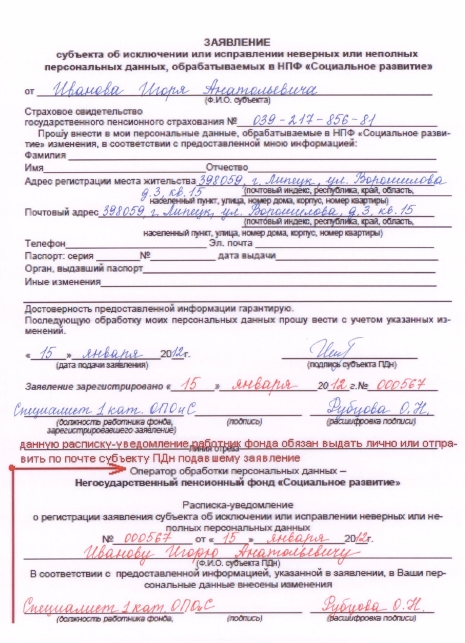 ЗАЯВЛЕНИЕ
субъекта об исключении или исправлении неверных или неполных
персональных данных, обрабатываемых в НПФ «Социальное развитие»
от Иванова Игоря Анатольевича
(Ф.И.О. субъекта)
Страховое свидетельство
государственного пенсионного страхования № 039-217-856-81
Прошу внести в мои персональные данные, обрабатываемые в НПФ «Социальное разви-
тие» изменения, в соответствии с предоставленной мною информацией:
Фамилия
Имя Отчество
Адрес регистрации места жительства 398059, г. Липецк, ул. Ворошилова
д.3, кв.15 (почтовый индекс, республика, край, область,
населенный пункт, улица, номер дома, корпус, номер квартиры)
Почтовый адрес 398059 г. Липецк, ул. Ворошилова, д.3, кв.15
(почтовый индекс, республика, край, область,
населенный пункт, улица, номер дома, корпус, номер квартиры)
Телефон Эл. почта
Паспорт: серия № дата выдачи
Орган, выдавший паспорт
Иные изменения
Достоверность предоставленной информации гарантирую.
Последующую обработку моих персональных данных прошу вести с учетом указанных из-
менений.
« 15 » января 2012г.
(дата подачи заявления) (подпись субъекта ПДн)
Заявление зарегистрировано « 15 » января 2012 г.№ 000567
Специалист 1 кат. ОПОиС Рубцова О.Н.
(должность работника фонда, (подпись) (расшифровка подписи)
зарегистрировавшего заявление)
данную расписку-уведомление работник фонда обязан выдать лично или отпра-
линия отрева
вить по почте субъекту ПДн подавшему заявление
Оператор обработки персональных данных –
Негосударственный пенсионный фонд «Социальное развитие»
Расписка-уведомление
о регистрации заявления субъекта об исключении или исправлении неверных или не-
полных персональных данных
№ 000567 от « 15 » января 2012г.
Иванову Игорю Анатольевичу
(Ф.И.О. субъекта ПДн)
В соответствии с предоставленной информацией, указанной в заявлении, в Ваши пер-
сональные данные внесены изменения
Специалист 1 кат. ОПОиС Рубцова О.Н.
(должность работника фонда, (подпись) (расшифровка подписи)